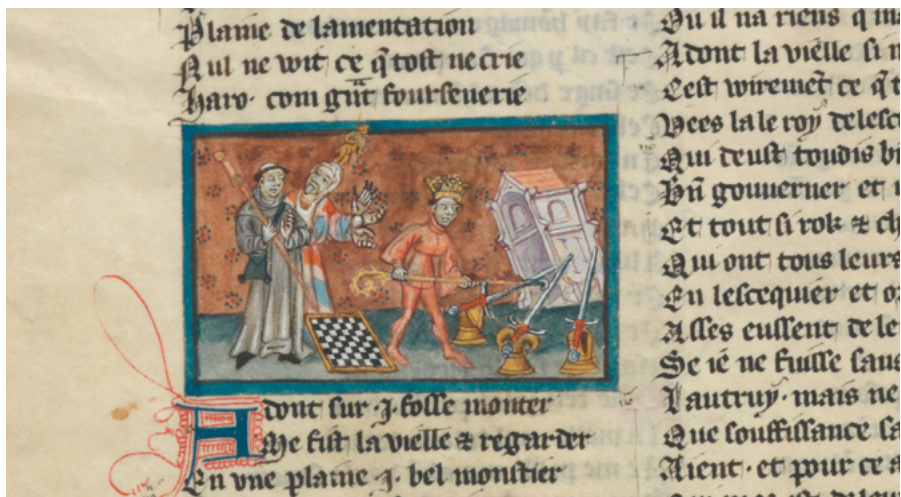 Plaine de lamentacion
Nul ne wit ce q̄ tost ne crie
Haro· com gñt fourseuerie
Adont sur ·j· fosse monter
Me fist la vielle ⁊ regarder
En vne plaine ·j· bel monstier
Qu il na riens q̄ ma
Adont la vielle si m
Cest wiremēt ce q̄ t
Vees la le roy delesc
Qui deust toudis bi
Bñ gouuerner et
Et tout si rok ⁊ ch
Qui ont tous leurs
En lescequier et o
Asses eussent de le
Se ie ne fuisse sans
Lautruy· mais ne
Que souffissance sa
Aient· et pour ce a